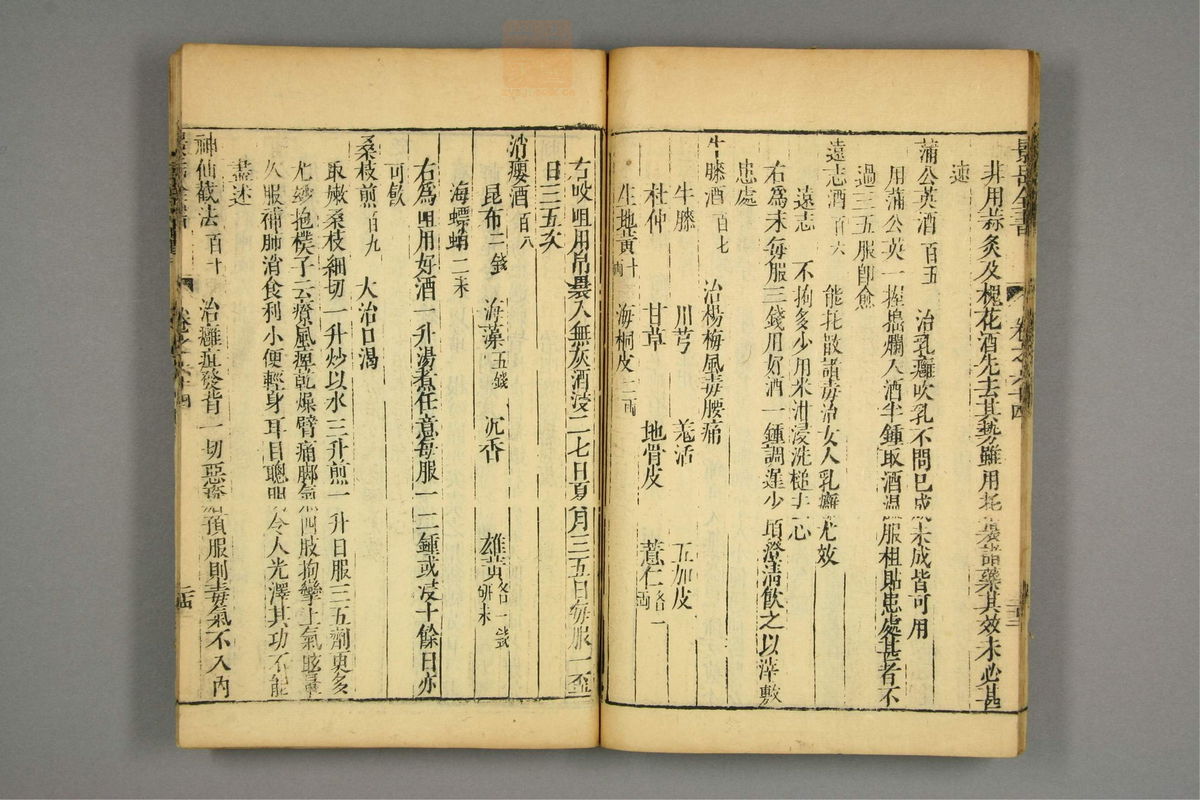 景岳全書 卷之六十四
非用蒜灸及槐花酒先去其勢雖用托裏諸藥其效未必甚
速
蒲公英酒 百五 治乳癰吹乳不問已成未成皆可用
用蒲公英一握搗爛入酒半鍾取酒溫服柤貼患處甚者不
過三五服卽愈
遠志酒 百六 能托散諸毒治女人乳癰尤效
遠志 不拘多少用米泔浸洗槌去心
右為末每服三錢用好酒一鍾調遲少頃澄清飲之以滓敷
患處
牛膝酒 百七 治楊梅風毒腰痛
牛膝 川芎 羌活 五加皮
杜仲 甘草 地骨皮 薏仁各一兩
生地黃十兩 海桐皮二兩
右㕮咀用帛裹入無灰酒浸二七日夏月三五日每服一盃
日三五次
消癭酒 百八
昆布三錢 海藻五錢 沉香 雄黃各一錢研末
海螵蛸二末
右為咀用好酒一升湯煮任意每服一二鍾或浸十餘日亦
可飲
桑枝煎 百九 大治口渴
取嫩桑枝細切一升炒以水三升煎一升日服三五劑更多
尤妙抱樸子云療風痺乾燥臂痛脚氣四肢拘攣上氣眩暈
久服補肺消食利小便輕身耳目聰明令人光澤其功不能
盡述
神仙截法 百十 治癰疽發背一切惡瘡預服則毒氣不入內